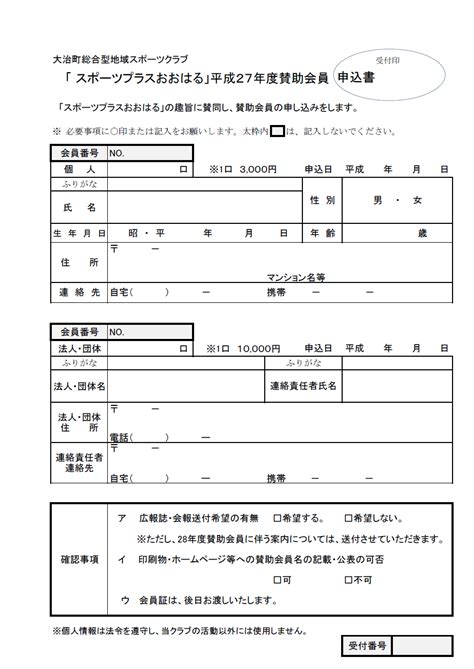 大治町総合型地域スポーツクラブ
受付印
「 スポーツプラスおおはる」平成27年度賛助会員 申込書
「スポーツプラスおおはる」の趣旨に賛同し、賛助会員の申し込みをします。
※ 必要事項に○印または記入をお願いします。太枠内□は、記入しないでください。
会員番号 NO.
個 人 口 ※1口 3,000円 申込日 平成 年 月 日
ふりがな
氏 名 性 別 男 ・ 女
生 年 月 日 昭 ・ 平 年 月 日 年 齢 歳
住 所 〒 －
マンション名等
連 絡 先 自宅( ) － 携帯 － －
会員番号 NO.
法人・団体 口 ※1口 10,000円 申込日 平成 年 月 日
ふりがな ふりがな
法人・団体名 連絡責任者氏名
法人・団体 〒 －
住 所
電話( ) －
連絡責任者
連絡先
自宅( ) － 携帯 － －
確認事項
ア 広報誌・会報送付希望の有無 □希望する。 □希望しない。
※ただし、28年度賛助会員に伴う案内については、送付させていただきます。
イ 印刷物・ホームページ等への賛助会員名の記載・公表の可否
□可 □不可
ウ 会員証は、後日お渡しいたします。
※個人情報は法令を遵守し、当クラブの活動以外には使用しません。
受付番号